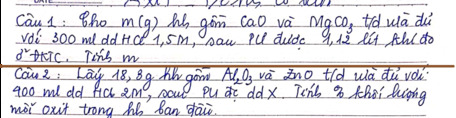 Câu 1: Cho m(g) hh gồm CaO và MgCO₃ t/d vừa đủ
với 300 ml dd HCl 1,5M, sau PƯ được 1,12 lít khí đo
ở ĐKTC. Tính m
Câu 2: Lấy 18,3g hh gồm Al₂O₃ và ZnO t/d vừa đủ với
400 ml dd HCl 2M, sau PƯ đc dd X. Tính % khối lượng
mỗi oxit trong hh ban đầu.